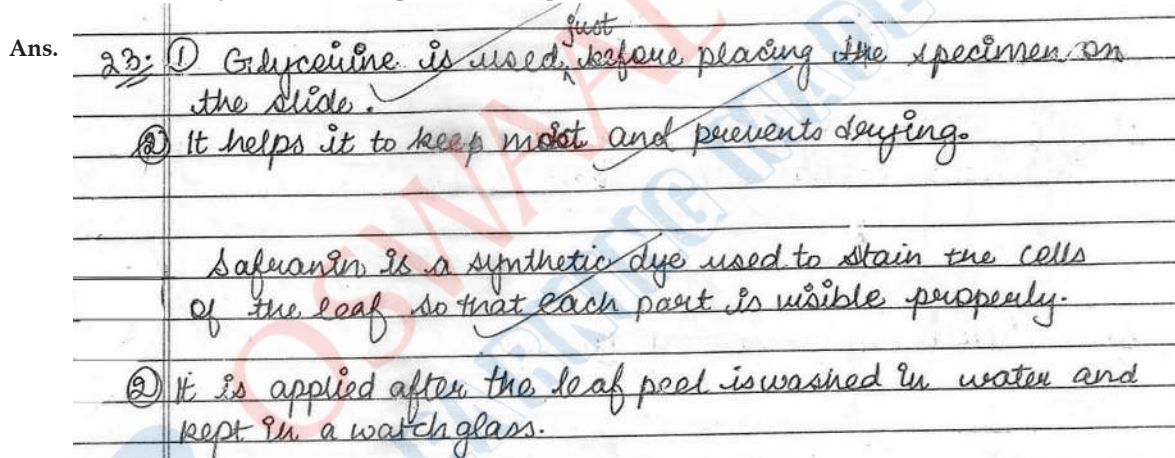 Ans. 23. ① Glycerine is used just before placing the specimen on
the slide.
② It helps it to keep moist and prevents drying.
Safranin is a synthetic dye used to stain the cells
of the leaf so that each part is visible properly.
② It is applied after the leaf peel is washed in water and
kept in a watch glass.
OSWAAL